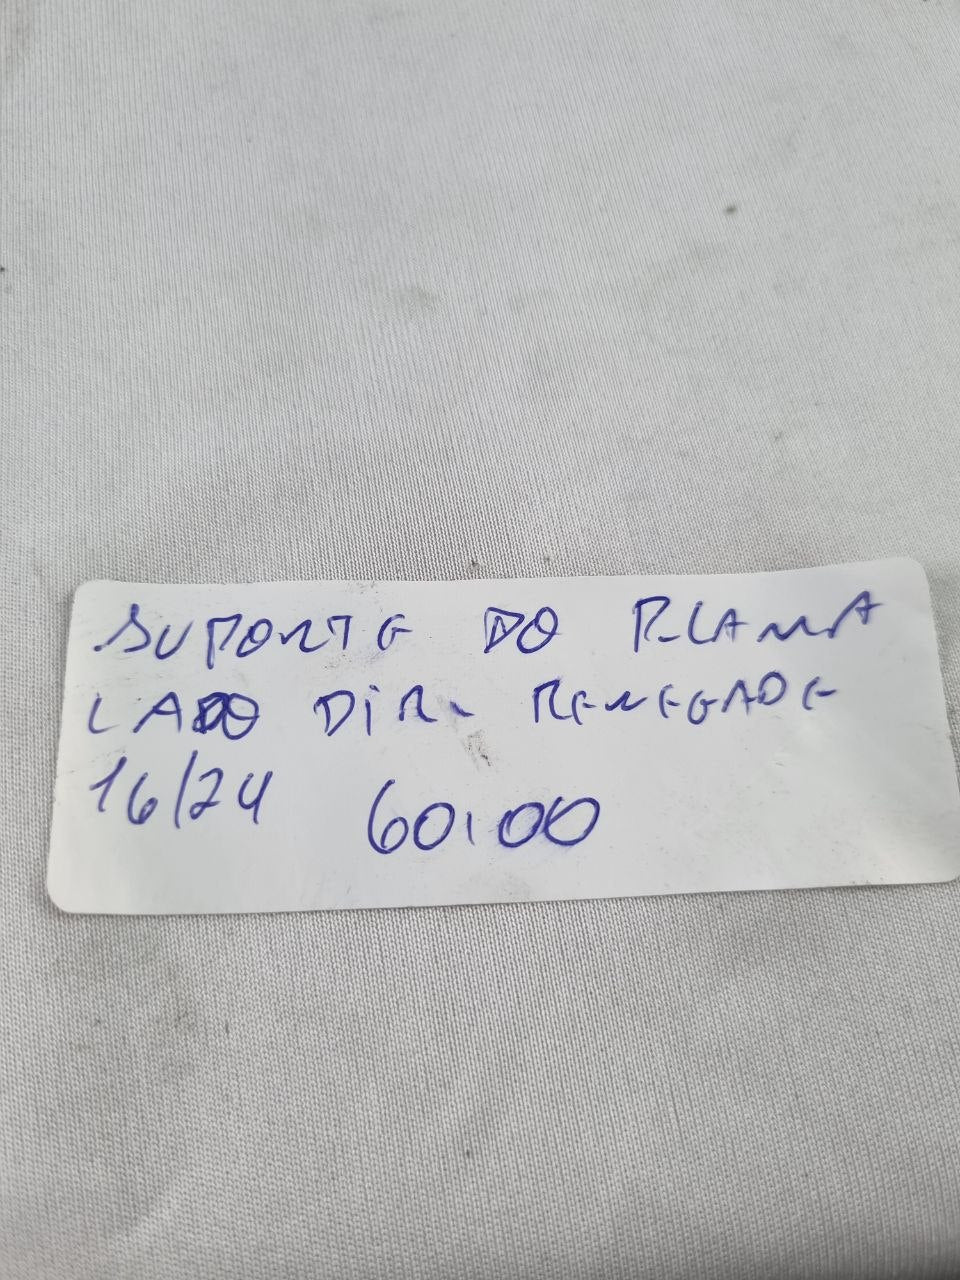 SUPORTE DO PLAMA
LADO DIR. RENEGADE
16/24 60,00